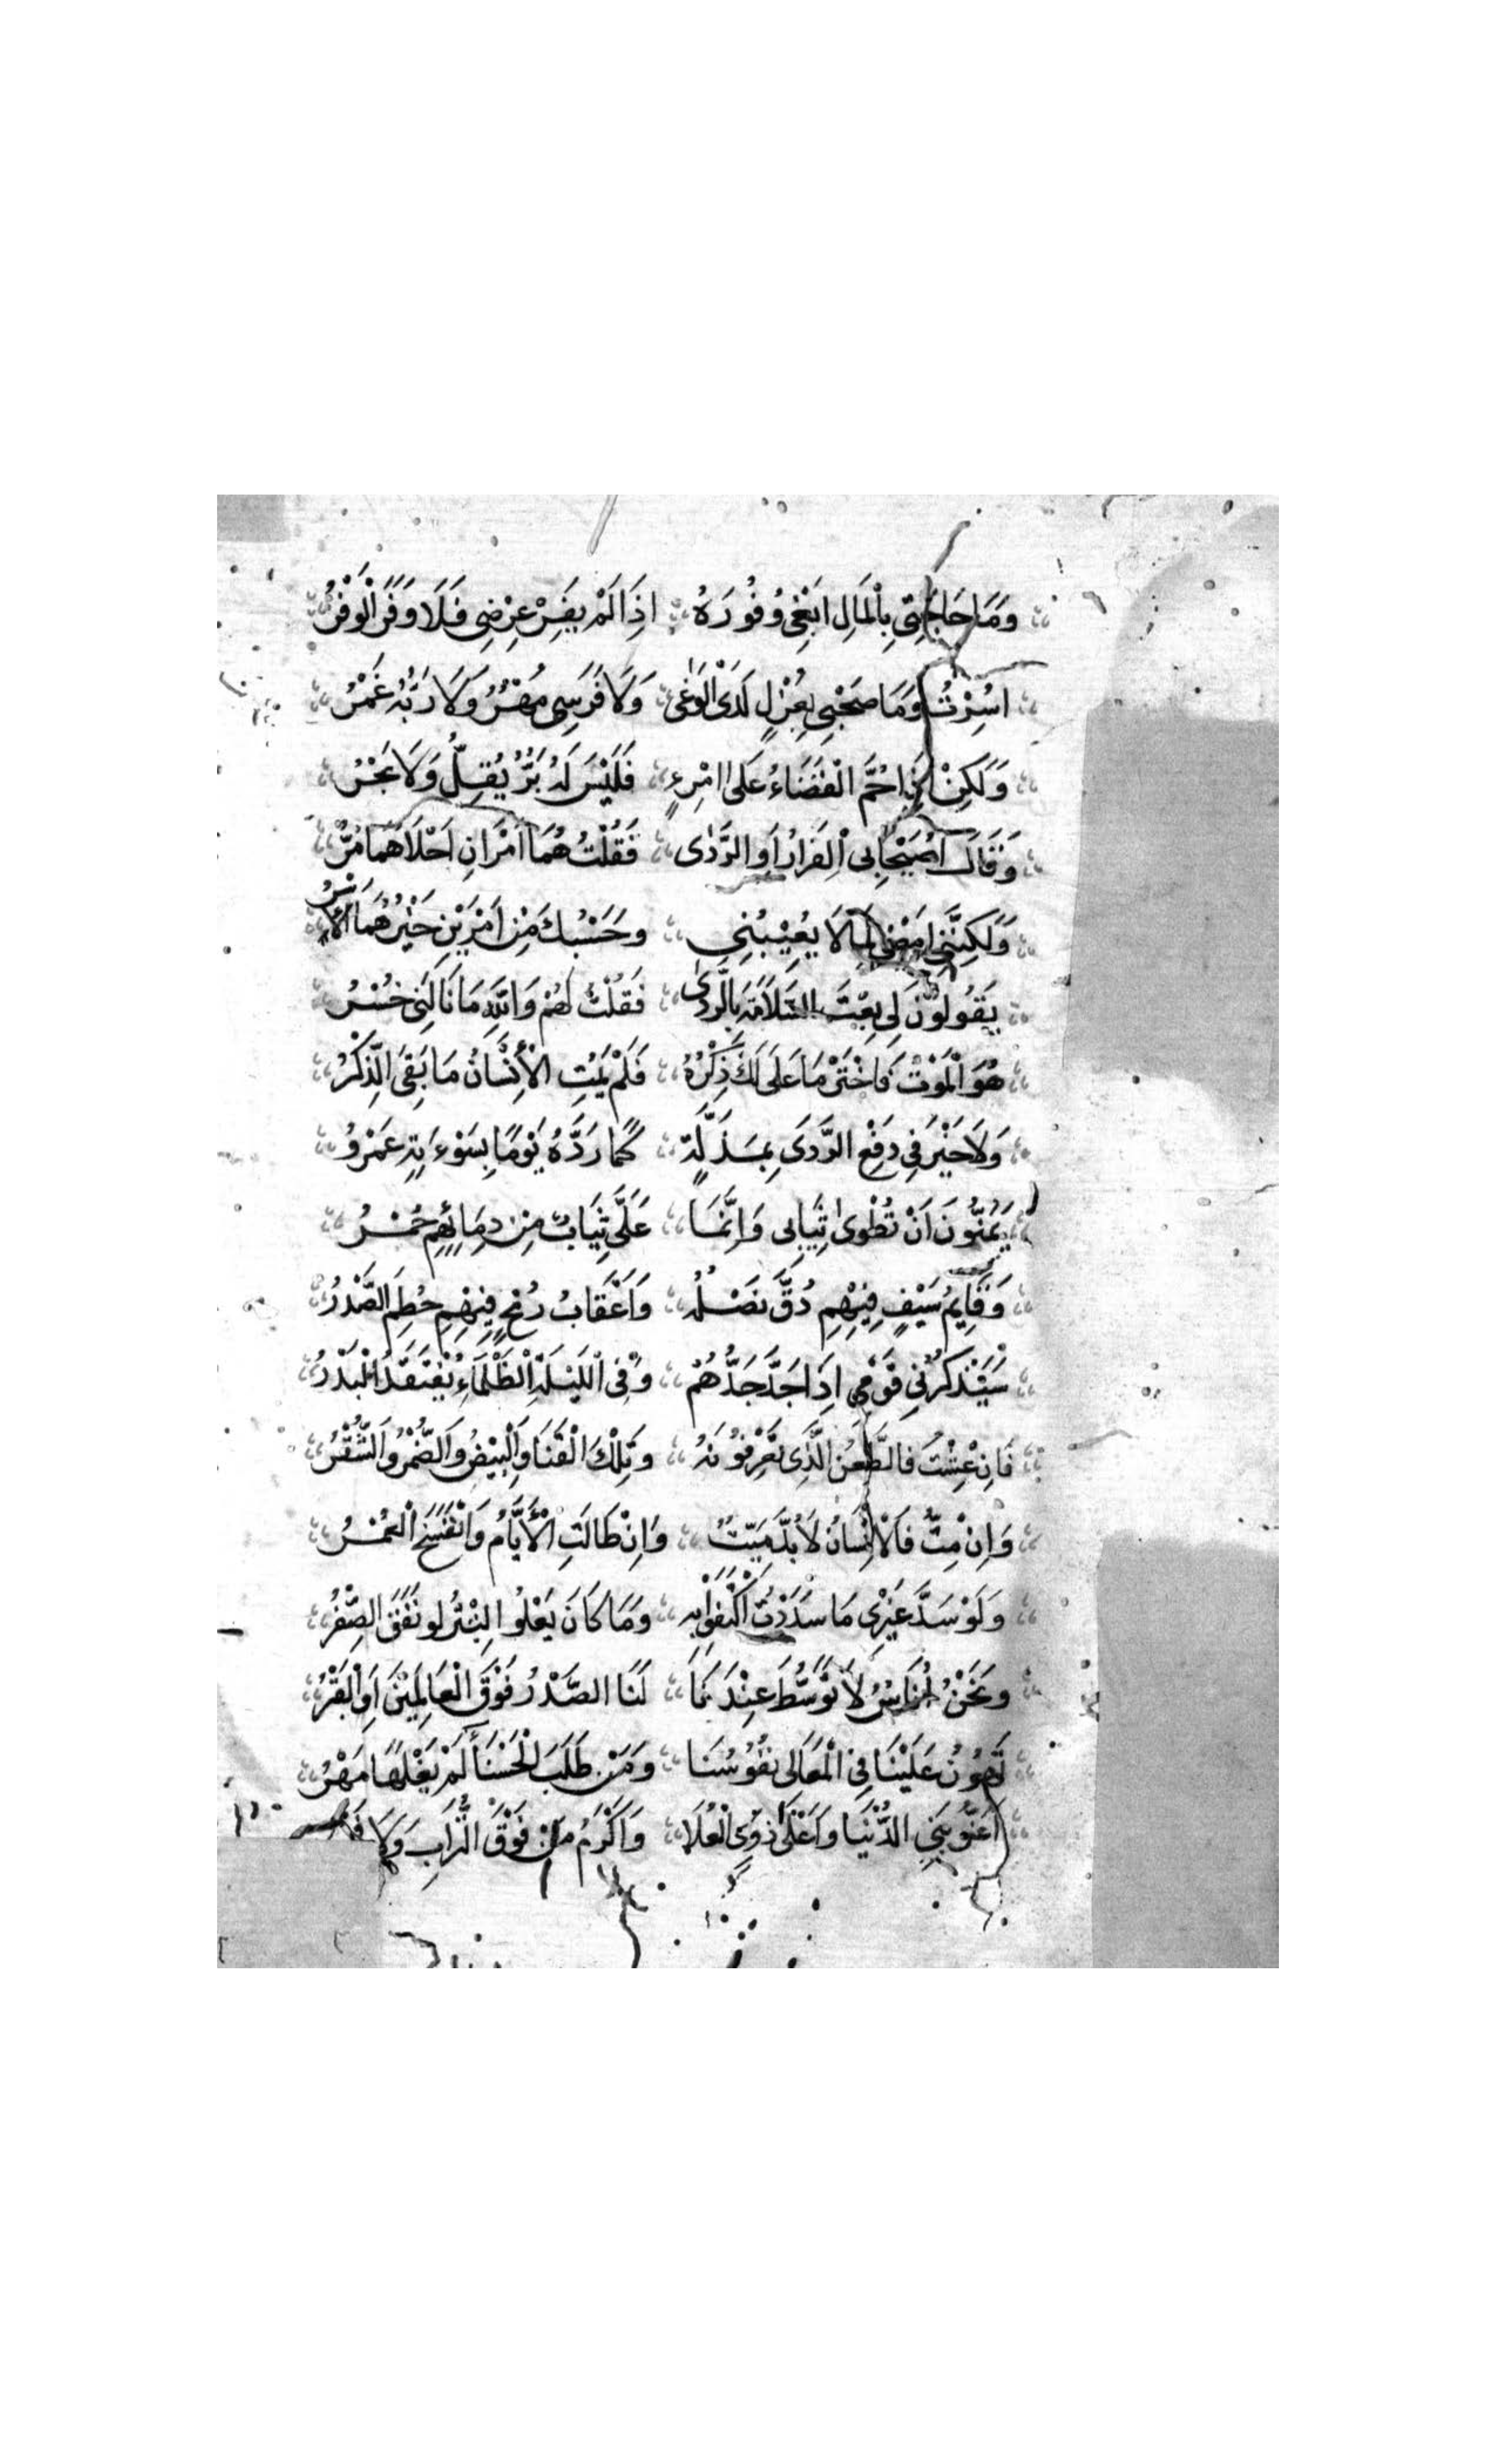 وَمَا حَاجَتِي بِالْمَالِ ابْغِي وُفُورَهُ اِذَا لَمْ يَفِرْ عِرْضِي فَلَا وَفَرَ الْوَفْرُ
اُسِرْتُ وَمَا صَحْبِي بِعُزْلٍ لَدَى الْوَغٰى وَلَا فَرَسِي مُهْرٌ وَلَا رَبُّهُ غَمْرُ
وَلَكِنْ اِذَا حُمَّ الْقَضَاءُ عَلَى امْرِءٍ فَلَيْسَ لَهُ بَرٌّ يُقِلُّ وَلَا بَحْرُ
وَقَالَ اُصَيْحَابِي الْفِرَارُ اَوِ الرَّدٰى فَقُلْتُ هُمَا اَمْرَانِ اَحْلَاهُمَا مُرُّ
وَلَكِنَّنِي امْضِي لِمَا لَا يُعِيْبُنِي وَحَسْبُكَ مِنْ اَمْرَيْنِ خَيْرُهُمَا الْاَسْرُ
يَقُولُونَ لِي بِعْتَ السَّلَامَةَ بِالرَّدٰى فَقُلْتُ لَهُمْ وَاللّٰهِ مَا نَالَنِي خُسْرُ
هُوَ الْمَوْتُ فَاخْتَرْ مَا عَلَى لَكَ ذِكْرُهُ فَلَمْ يَمُتِ الْاِنْسَانُ مَا بَقِيَ الذِّكْرُ
وَلَا خَيْرَ فِي دَفْعِ الرَّدَى بِمَذَلَّةٍ كَمَا رَدَّهُ يَوْمًا بِسَوْءَتِهِ عَمْرُو
يَمُنُّونَ اَنْ تُطْوٰى ثِيَابِي وَاِنَّمَا عَلَيَّ ثِيَابٌ مِنْ دِمَائِهِمِ حُمْرُ
وَقَايِمُ سَيْفٍ فِيْهِمِ دُقَّ نَصْلُهُ وَاَعْقَابُ رُمْحٍ فِيهِمِ حُطِمَ الصَّدْرُ
سَيَذْكُرُنِي قَوْمِي اِذَا جَدَّ جَدُّهُمْ وَفِي اللَّيْلَةِ الظَّلْمَاءِ يُفْتَقَدُ الْبَدْرُ
فَاِنْ عِشْتُ فَالطَّعْنُ الَّذِي تَعْرِفُونَهُ وَتِلْكَ الْقَنَا وَالْبِيْضُ وَالضُّمْرُ وَالشُّقْرُ
وَاِنْ مِتُّ فَالْاِنْسَانُ لَا بُدَّ مَيِّتٌ وَاِنْ طَالَتِ الْاَيَّامُ وَانْفَسَحَ الْعُمْرُ
وَلَوْ سَدَّ غَيْرِي مَا سَدَدْتُ اكْتَفَوْا بِهِ وَمَا كَانَ يَغْلُوا التِّبْرُ لَوْ نَفَقَ الصُّفْرُ
وَنَحْنُ اُنَاسٌ لَا تَوَسُّطَ عِنْدَنَا لَنَا الصَّدْرُ فَوْقَ الْعَالَمِيْنَ اَوِ الْقَبْرُ
تَهُونُ عَلَيْنَا فِي الْمَعَالِي نُفُوسُنَا وَمَنْ طَلَبَ الْحَسْنَاءَ لَمْ يَغْلُهَا مَهْرُ
اَعَزُّ بَنِي الدُّنْيَا وَاَعْلَى ذَوِي الْعُلَا وَاَكْرَمُ مَنْ فَوْقَ التُّرَابِ وَلَا